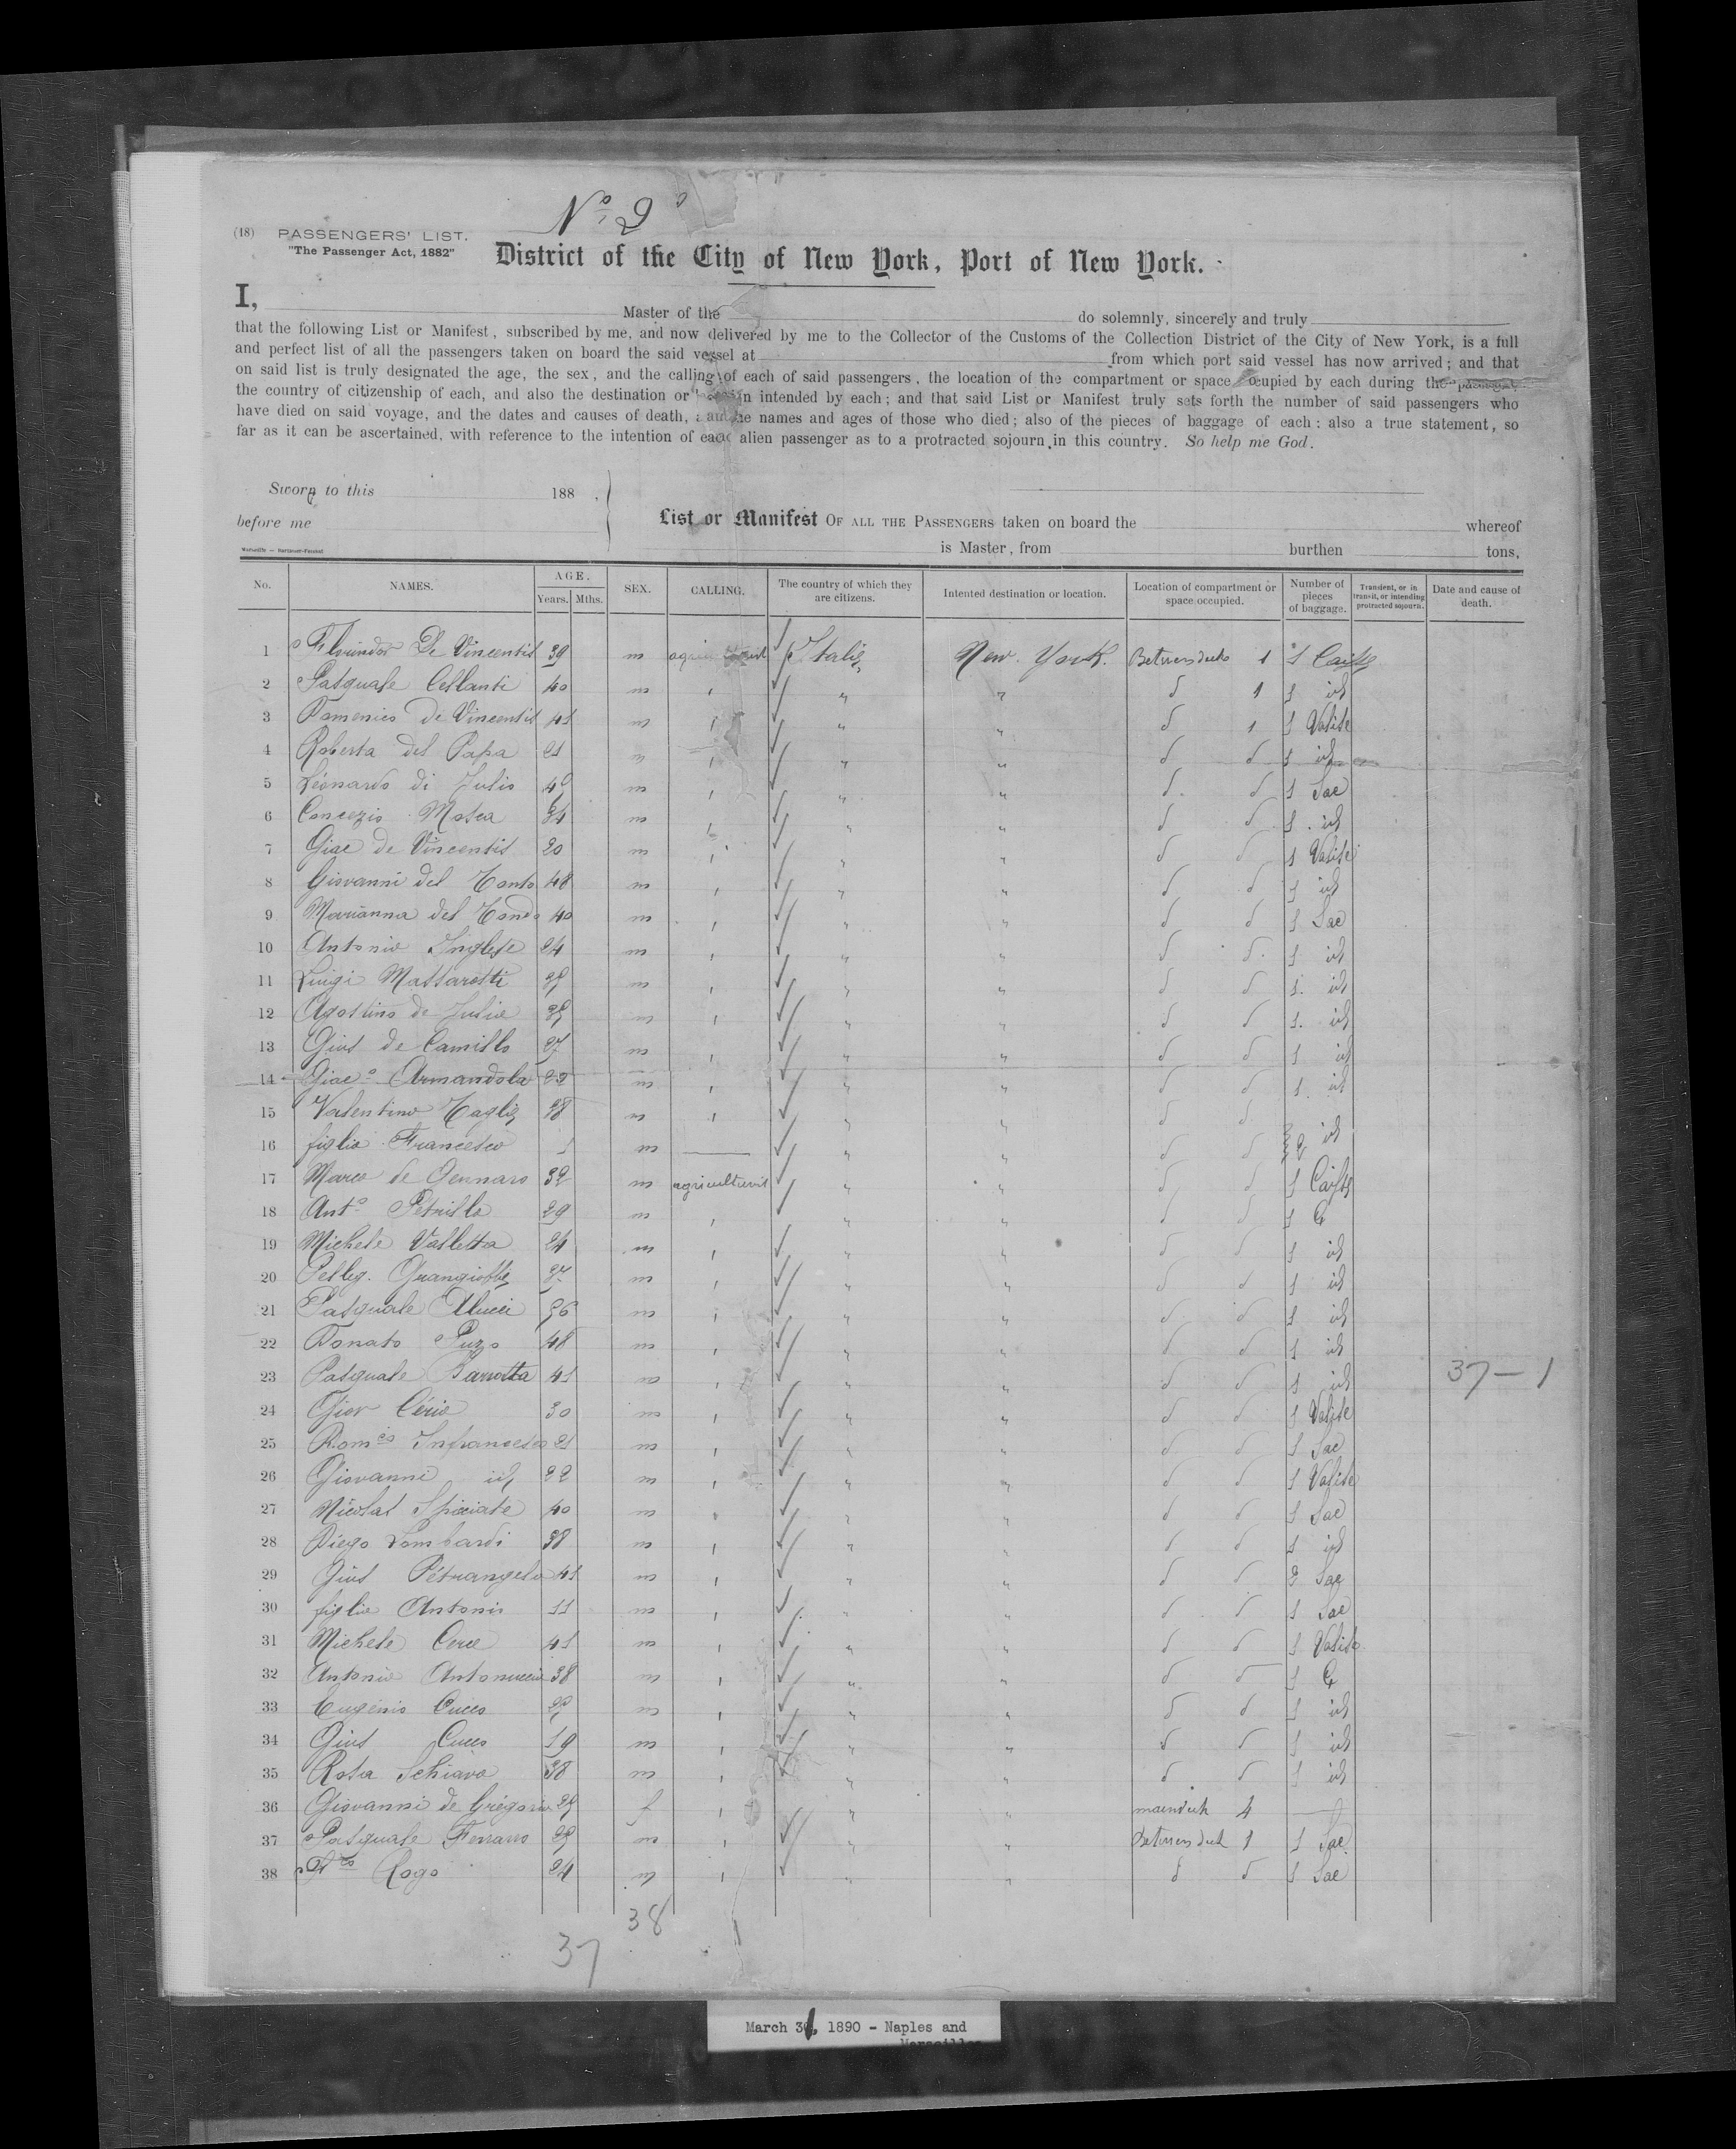 Nº 2
(18) PASSENGERS' LIST.
"The Passenger Act, 1882"
District of the City of New York, Port of New York.
I, Master of the do solemnly, sincerely and truly
that the following List or Manifest, subscribed by me, and now delivered by me to the Collector of the Customs of the Collection District of the City of New York, is a full
and perfect list of all the passengers taken on board the said vessel at from which port said vessel has now arrived; and that
on said list is truly designated the age, the sex, and the calling of each of said passengers, the location of the compartment or space ocupied by each during the passage,
the country of citizenship of each, and also the destination or intended by each; and that said List or Manifest truly sets forth the number of said passengers who
have died on said voyage, and the dates and causes of death, and the names and ages of those who died; also of the pieces of baggage of each: also a true statement, so
far as it can be ascertained, with reference to the intention of each alien passenger as to a protracted sojourn in this country. So help me God.
Sworn to this 188 .
before me
List or Manifest OF ALL THE PASSENGERS taken on board the whereof
is Master, from burthen tons,
No. NAMES. AGE. Years. Mths. SEX. CALLING. The country of which they are citizens. Intented destination or location. Location of compartment or space occupied. Number of pieces of baggage. Transient, or in transit, or intending protracted sojourn. Date and cause of death.
1 De Vincentis 39 m Italie New York. Betweendeck 1 1 Caisse
2 Pasquale Cellanti 40 m " " 1 1 id
3 Domenico de Vincentis 41 m " " 1 1 Valise
4 Roberta del Papa 21 " " 1 id
5 Léonardo di Julio m " " 1 Sac
6 Concezio Mosca 34 m " " 1 id
7 Giac de Vincentis 20 m " " 1 Valise
8 Giovanni del Tonto 48 m " " 1 id
9 Marianna del Tondo 40 m " " 1 Sac
10 Antonio Inglese 24 m " " 1 id
11 Luigi Massaretti m " " 1 id
12 Agostino de Julio m " " 1 id
13 Gius de Camillo 27 m " " 1 id
14 Giacº Armandola m " " 1 id
15 Valentino 38 m " " id
16 figlio Francesco 1 m " " 2
17 Marco de Gennaro 32 m agriculturist " " 1 Caisse
18 Antº Petrilla 29 m " " 1
19 Michele Valletta 24 m " " 1 id
20 Pelleg. 37 m " " 1 id
21 Pasquale Alucci m " " 1 id
22 Donato Puzo 48 m " " 1 id
23 Pasquale 41 m " " 1 id 37 — 1
24 Giov Cerio 30 m " " 1 Valise
25 Infrancesco 21 m " " 1 Sac
26 Giovanni id 22 m " " 1 Valise
27 Nicolas 40 m " " 1 Sac
28 Diego Lombardi 38 m " " 1 id
29 Gius Pétrangelo 41 m " " 2 Sac
30 figlio Antonio 11 m " " 1 Sac
31 Michele Cerce 41 m " " 1 Valise
32 Antonio Antonuccio 38 m " " 1
33 Eugénio Cucco m " " 1 id
34 Gius Cucco 19 m " " 1 id
35 Rosa Schiavo 38 m " " 1 id
36 Giovanni de Grégorio f " " maindeck 4
37 Pasquale Ferraro m " " Betweendeck 1 1 Sac
38 Rogo 24 m " " 1 Sac
38
37
March 31, 1890 - Naples and